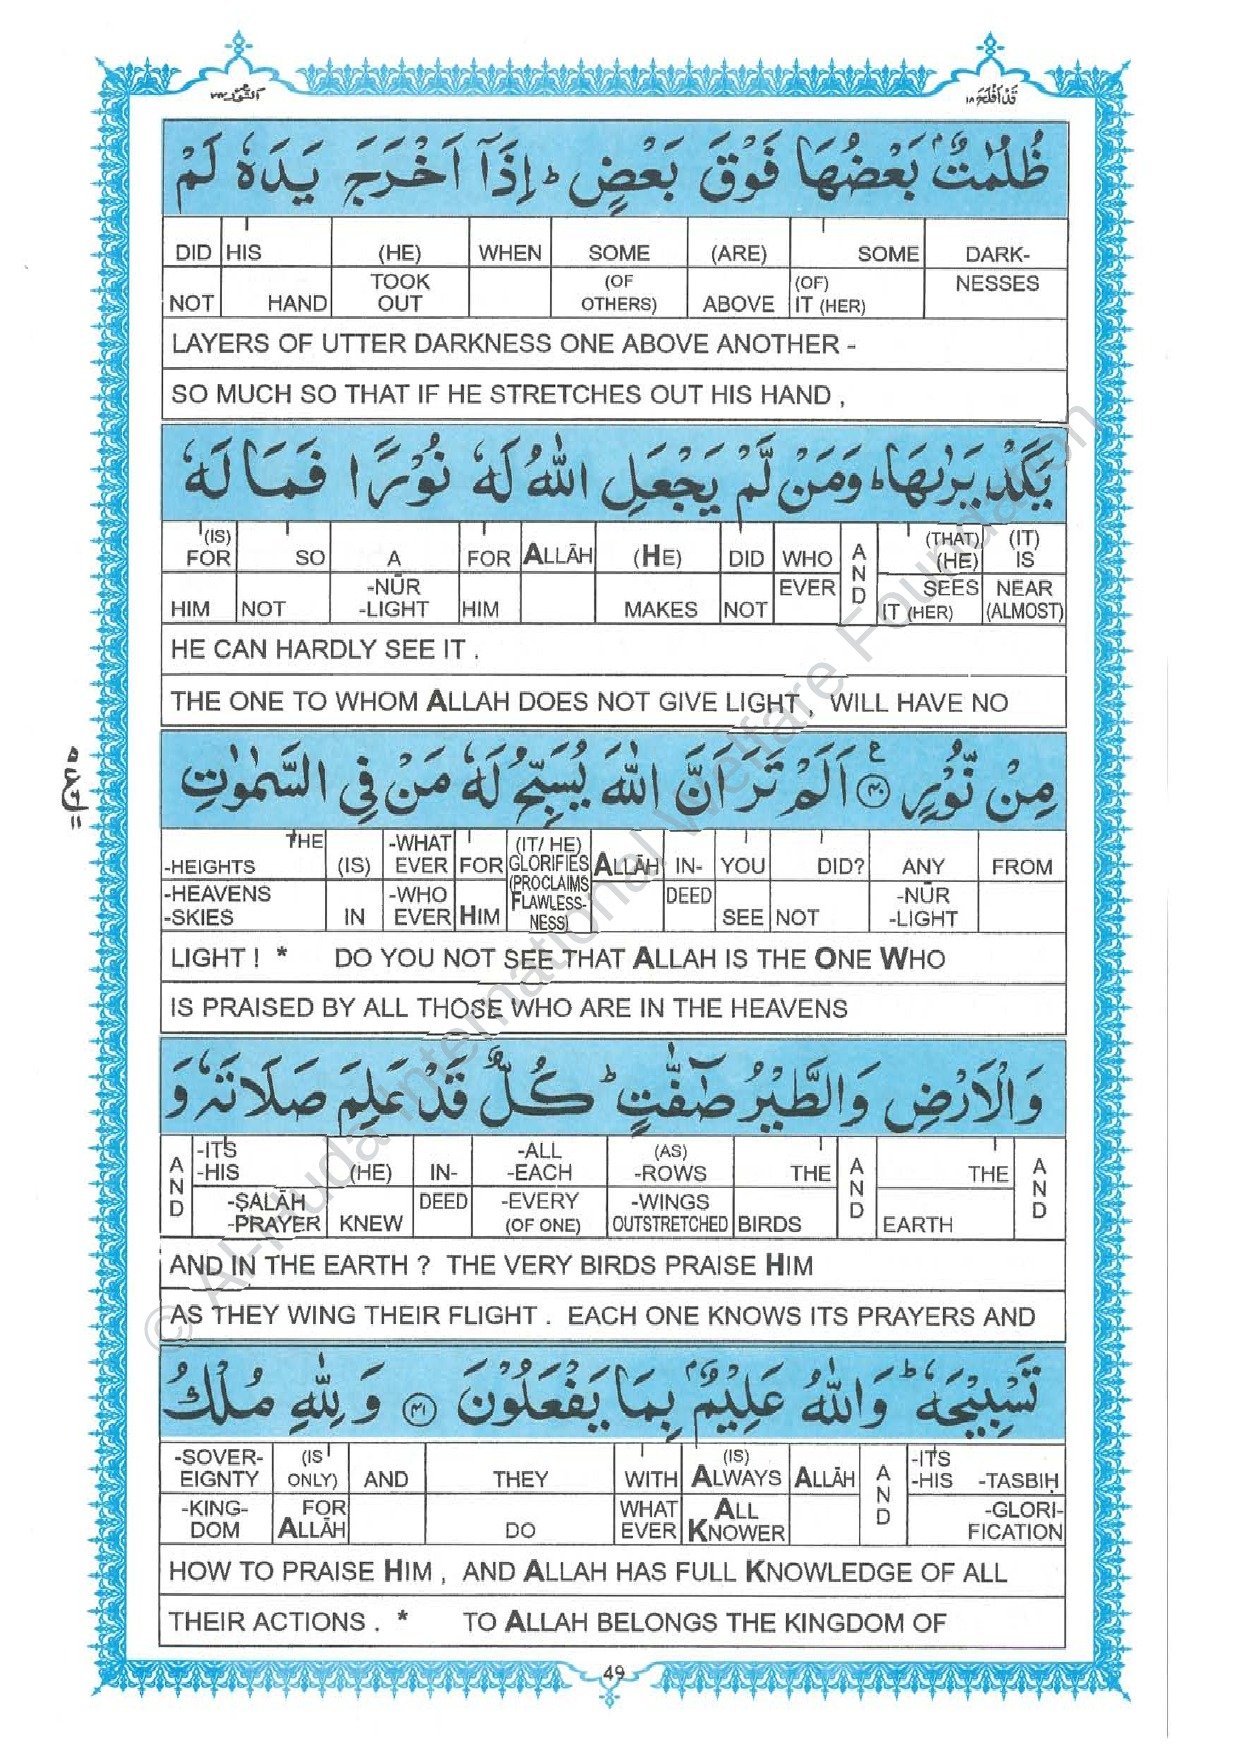 قَدْ اَفْلَحَ ۱۸
اَلنُّوْر ۲۴
ظُلُمٰتٌۢ بَعْضُهَا فَوْقَ بَعْضٍ ؕ اِذَاۤ اَخْرَجَ يَدَهٗ لَمْ
DID HIS (HE) WHEN SOME (ARE) SOME DARK-
NOT HAND TOOK OUT (OF OTHERS) ABOVE (OF) IT (HER) NESSES
LAYERS OF UTTER DARKNESS ONE ABOVE ANOTHER -
SO MUCH SO THAT IF HE STRETCHES OUT HIS HAND ,
يَكَدْ يَرٰىهَا ؕ وَمَنْ لَّمْ يَجْعَلِ اللّٰهُ لَهٗ نُوْرًا فَمَا لَهٗ
(IS) FOR SO A FOR ALLĀH (HE) DID WHO AND (THAT) (HE) (IT) IS
HIM NOT -NŪR -LIGHT HIM MAKES NOT EVER SEES IT (HER) NEAR (ALMOST)
HE CAN HARDLY SEE IT .
THE ONE TO WHOM ALLAH DOES NOT GIVE LIGHT , WILL HAVE NO
مِنْ نُّوْرٍ ۴۰ ع اَلَمْ تَرَ اَنَّ اللّٰهَ يُسَبِّحُ لَهٗ مَنْ فِى السَّمٰوٰتِ
THE -HEIGHTS (IS) -WHAT EVER FOR (IT/ HE) GLORIFIES ALLĀH IN- YOU DID? ANY FROM
-HEAVENS -SKIES IN -WHO EVER HIM (PROCLAIMS FLAWLESS-NESS) DEED SEE NOT -NŪR -LIGHT
LIGHT ! * DO YOU NOT SEE THAT ALLAH IS THE ONE WHO
IS PRAISED BY ALL THOSE WHO ARE IN THE HEAVENS
وَالْاَرْضِ وَالطَّيْرُ صٰٓفّٰتٍ ؕ كُلٌّ قَدْ عَلِمَ صَلَاتَهٗ وَ
AND -ITS -HIS (HE) IN- -ALL -EACH (AS) -ROWS THE AND THE AND
-ṢALĀH -PRAYER KNEW DEED -EVERY (OF ONE) -WINGS OUTSTRETCHED BIRDS EARTH
AND IN THE EARTH ? THE VERY BIRDS PRAISE HIM
AS THEY WING THEIR FLIGHT . EACH ONE KNOWS ITS PRAYERS AND
تَسْبِيْحَهٗ ؕ وَاللّٰهُ عَلِيْمٌۢ بِمَا يَفْعَلُوْنَ ۴۱ وَ لِلّٰهِ مُلْكُ
-SOVER-EIGNTY (IS ONLY) AND THEY WITH (IS) ALWAYS ALLĀH AND -ITS -HIS -TASBIḤ
-KING-DOM FOR ALLĀH DO WHAT EVER ALL KNOWER -GLORI-FICATION
HOW TO PRAISE HIM , AND ALLAH HAS FULL KNOWLEDGE OF ALL
THEIR ACTIONS . * TO ALLAH BELONGS THE KINGDOM OF
49
© Al-Huda International Welfare Foundation